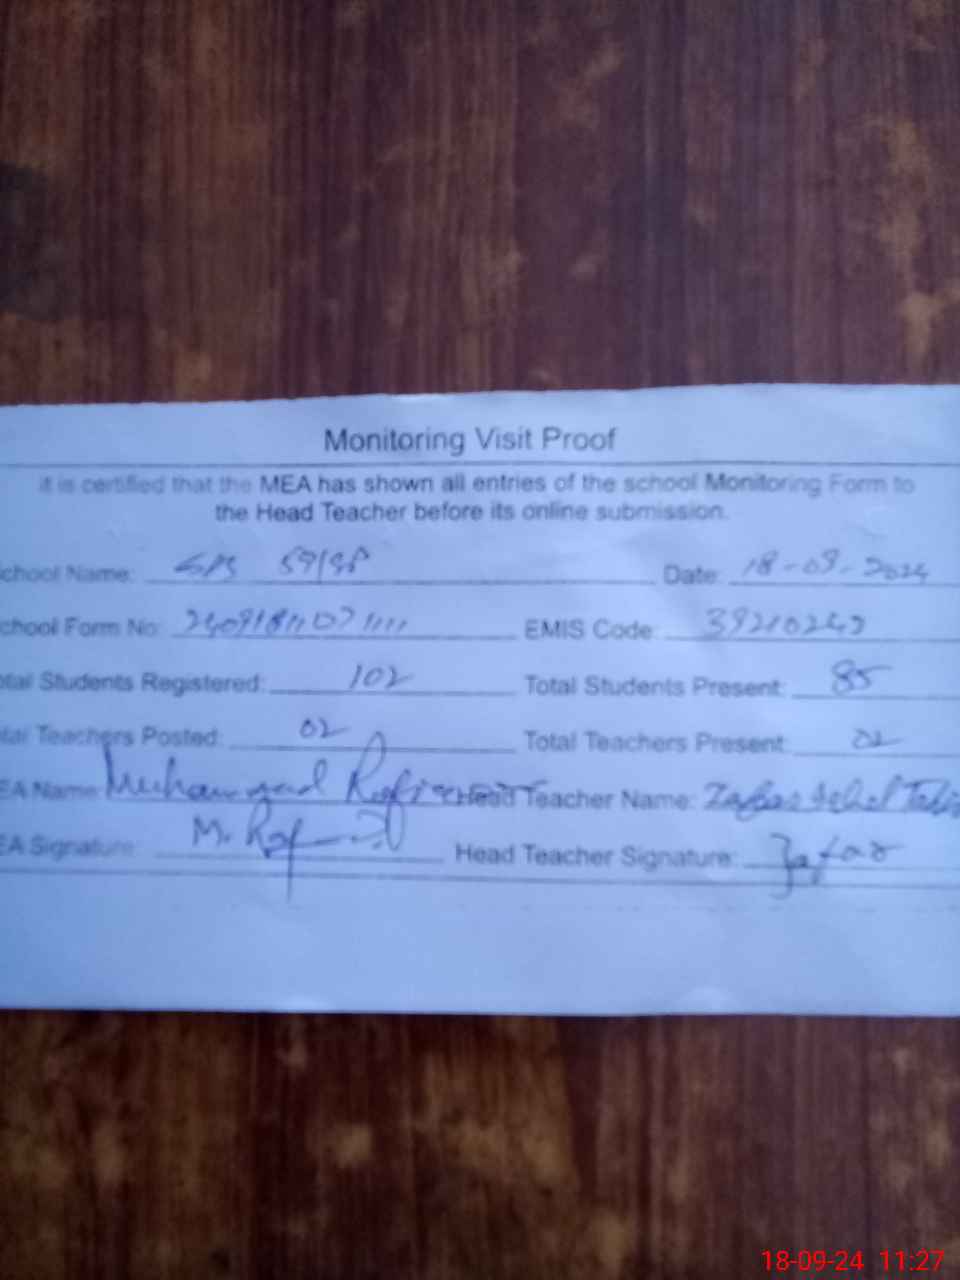 Monitoring Visit Proof
it is certified that the MEA has shown all entries of the school Monitoring Form to
the Head Teacher before its online submission.
chool Name: GPS 59/SP Date: 18-09-2024
chool Form No: EMIS Code:
otal Students Registered: 102 Total Students Present: 85
tal Teachers Posted: 02 Total Teachers Present: 02
EA Name: Muhammad Head Teacher Name: Zafar
EA Signature: M. Head Teacher Signature: Zafar
18-09-24 11:27